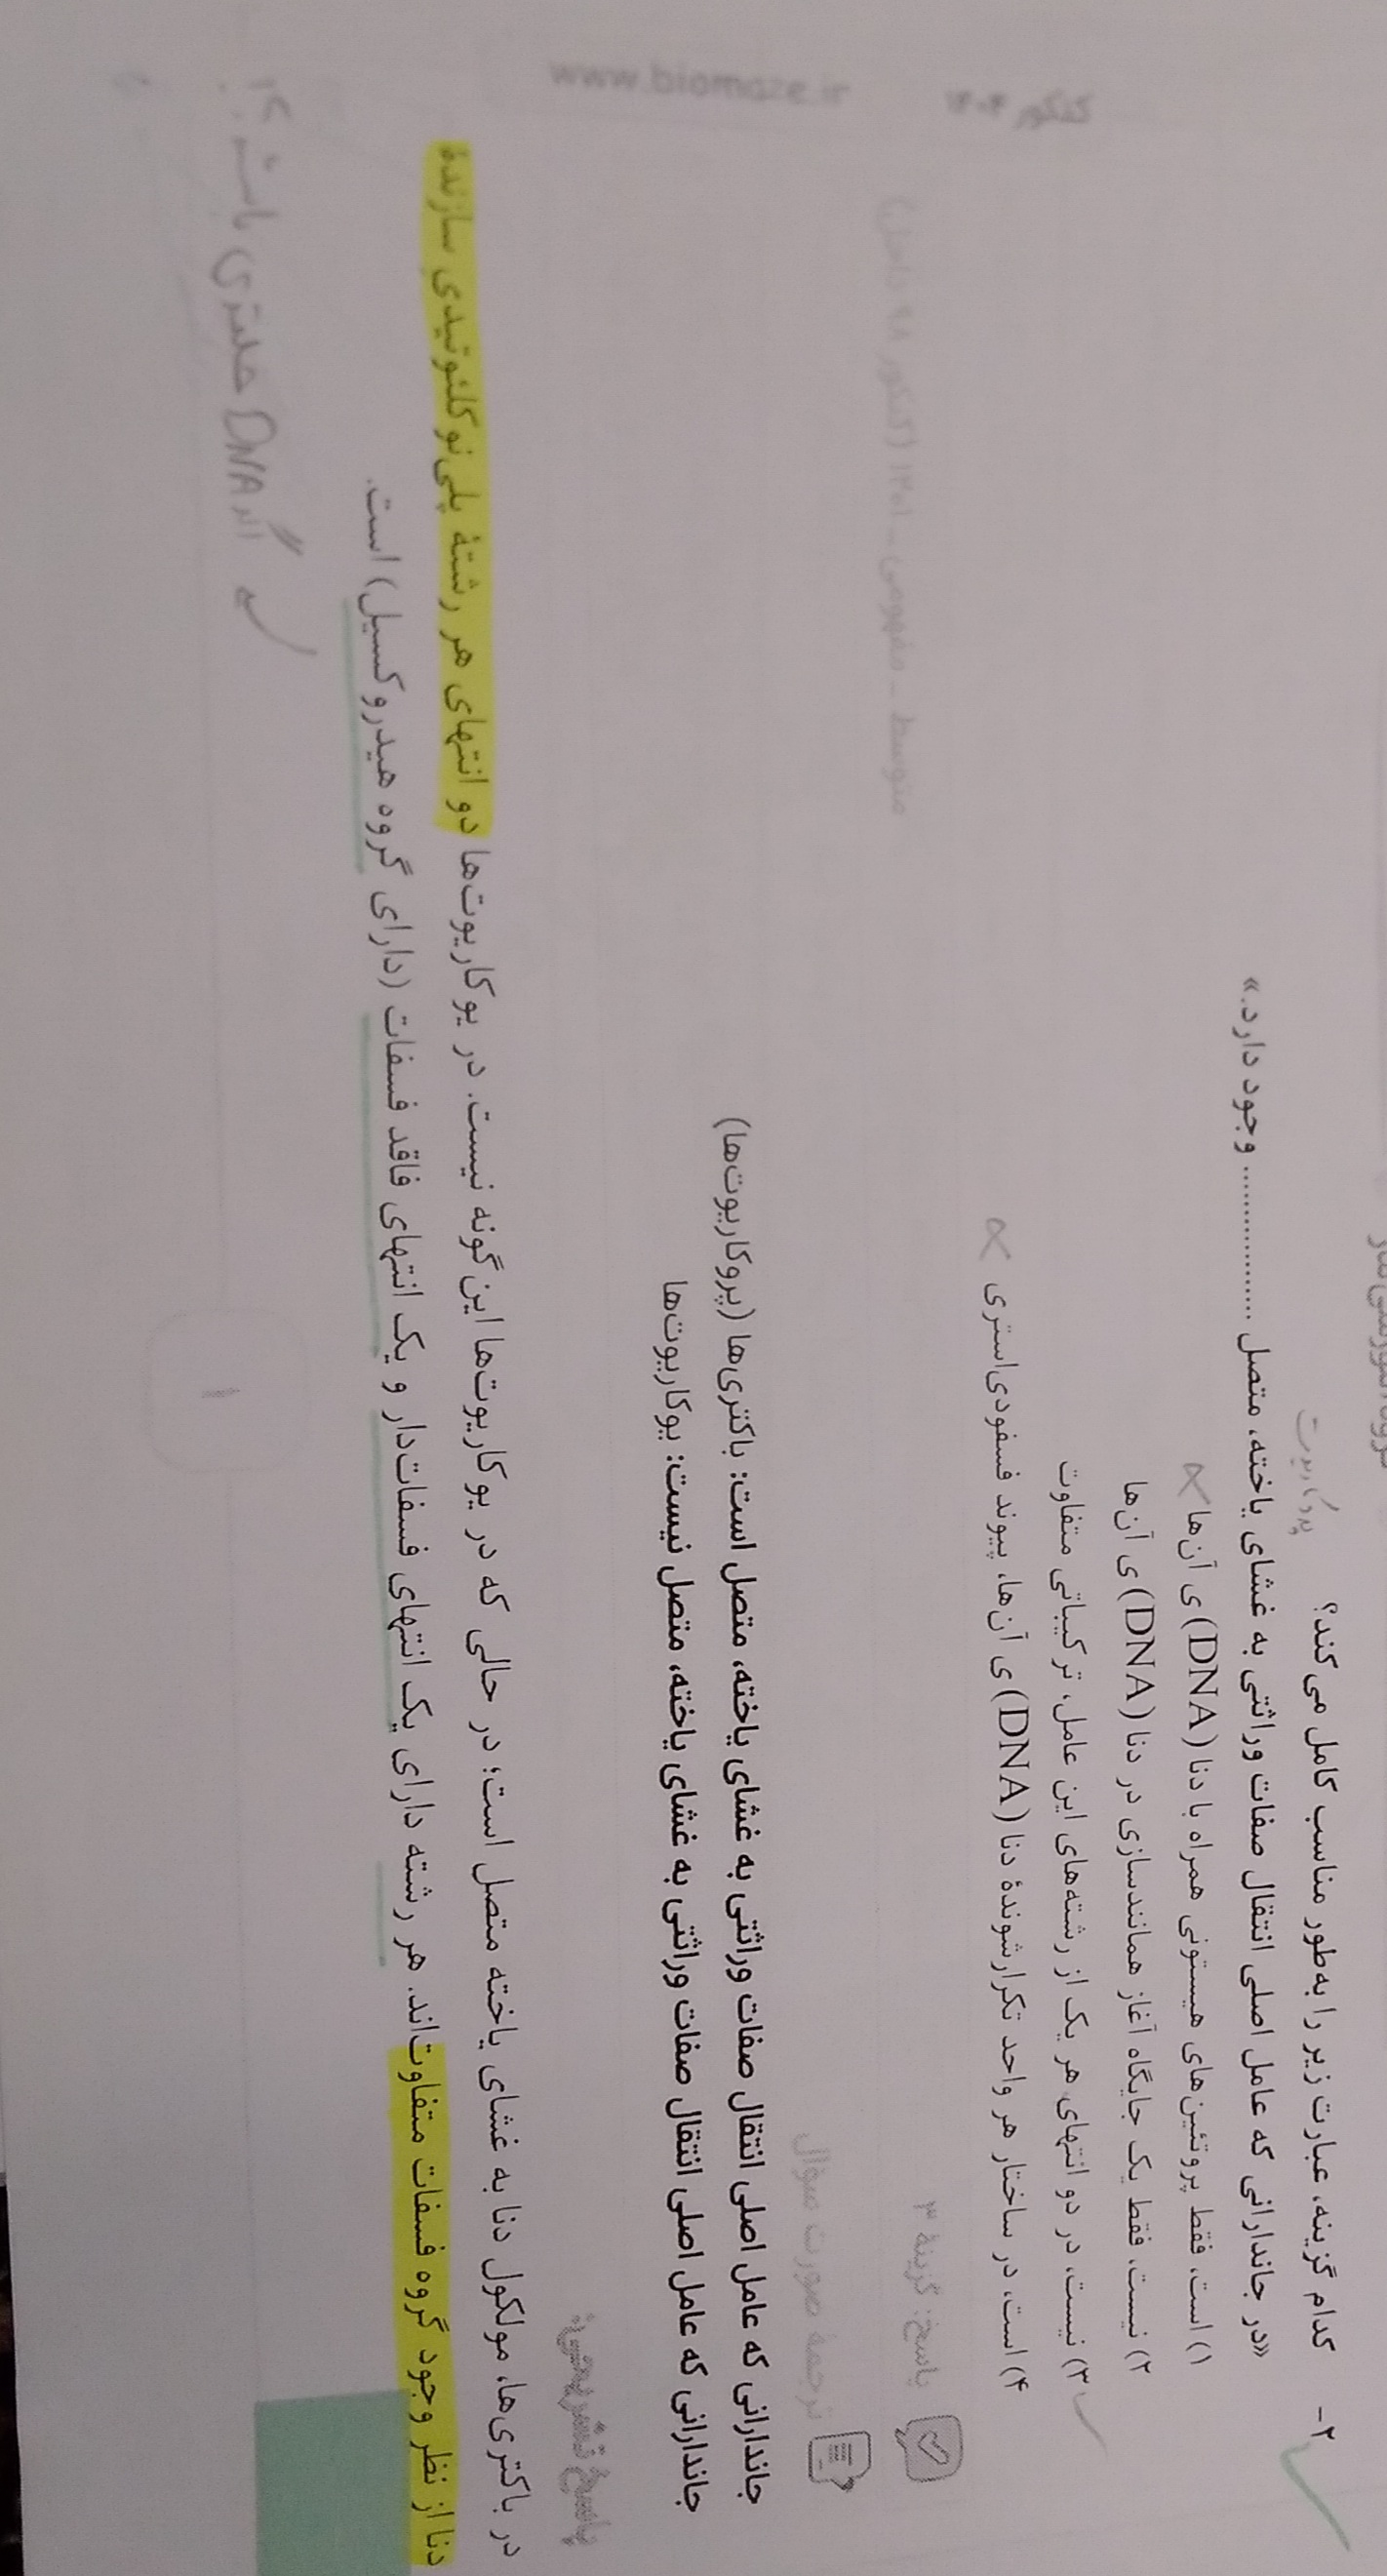 کنکور ۱۴۰۴
www.biomaze.ir
۲- کدام گزینه، عبارت زیر را به‌طور مناسب کامل می‌کند؟
پروکاریوت
«در جاندارانی که عامل اصلی انتقال صفات وراثتی به غشای یاخته، متصل ............... وجود دارد.»
۱) است، فقط پروتئین‌های هیستونی همراه با دنا (DNA)ی آن‌ها
۲) نیست، فقط یک جایگاه آغاز همانندسازی در دنا (DNA)ی آن‌ها
۳) نیست، در دو انتهای هر یک از رشته‌های این عامل، ترکیباتی متفاوت
۴) است، در ساختار هر واحد تکرارشوندهٔ دنا (DNA)ی آن‌ها، پیوند فسفودی‌استری
پاسخ: گزینهٔ ۳
متوسط - مفهومی - ۱۲۰۱ (کنکور ۹۸ داخل)
ترجمهٔ صورت سؤال
جاندارانی که عامل اصلی انتقال صفات وراثتی به غشای یاخته، متصل است: باکتری‌ها (پروکاریوت‌ها)
جاندارانی که عامل اصلی انتقال صفات وراثتی به غشای یاخته، متصل نیست: یوکاریوت‌ها
پاسخ تشریحی:
در باکتری‌ها، مولکول دنا به غشای یاخته متصل است؛ در حالی که در یوکاریوت‌ها این‌گونه نیست. در یوکاریوت‌ها دو انتهای هر رشتهٔ پلی‌نوکلئوتیدی سازندهٔ
دنا از نظر وجود گروه فسفات متفاوت‌اند. هر رشته دارای یک انتهای فسفات‌دار و یک انتهای فاقد فسفات (دارای گروه هیدروکسیل) است.
اگر DNA خطی باشد
۱